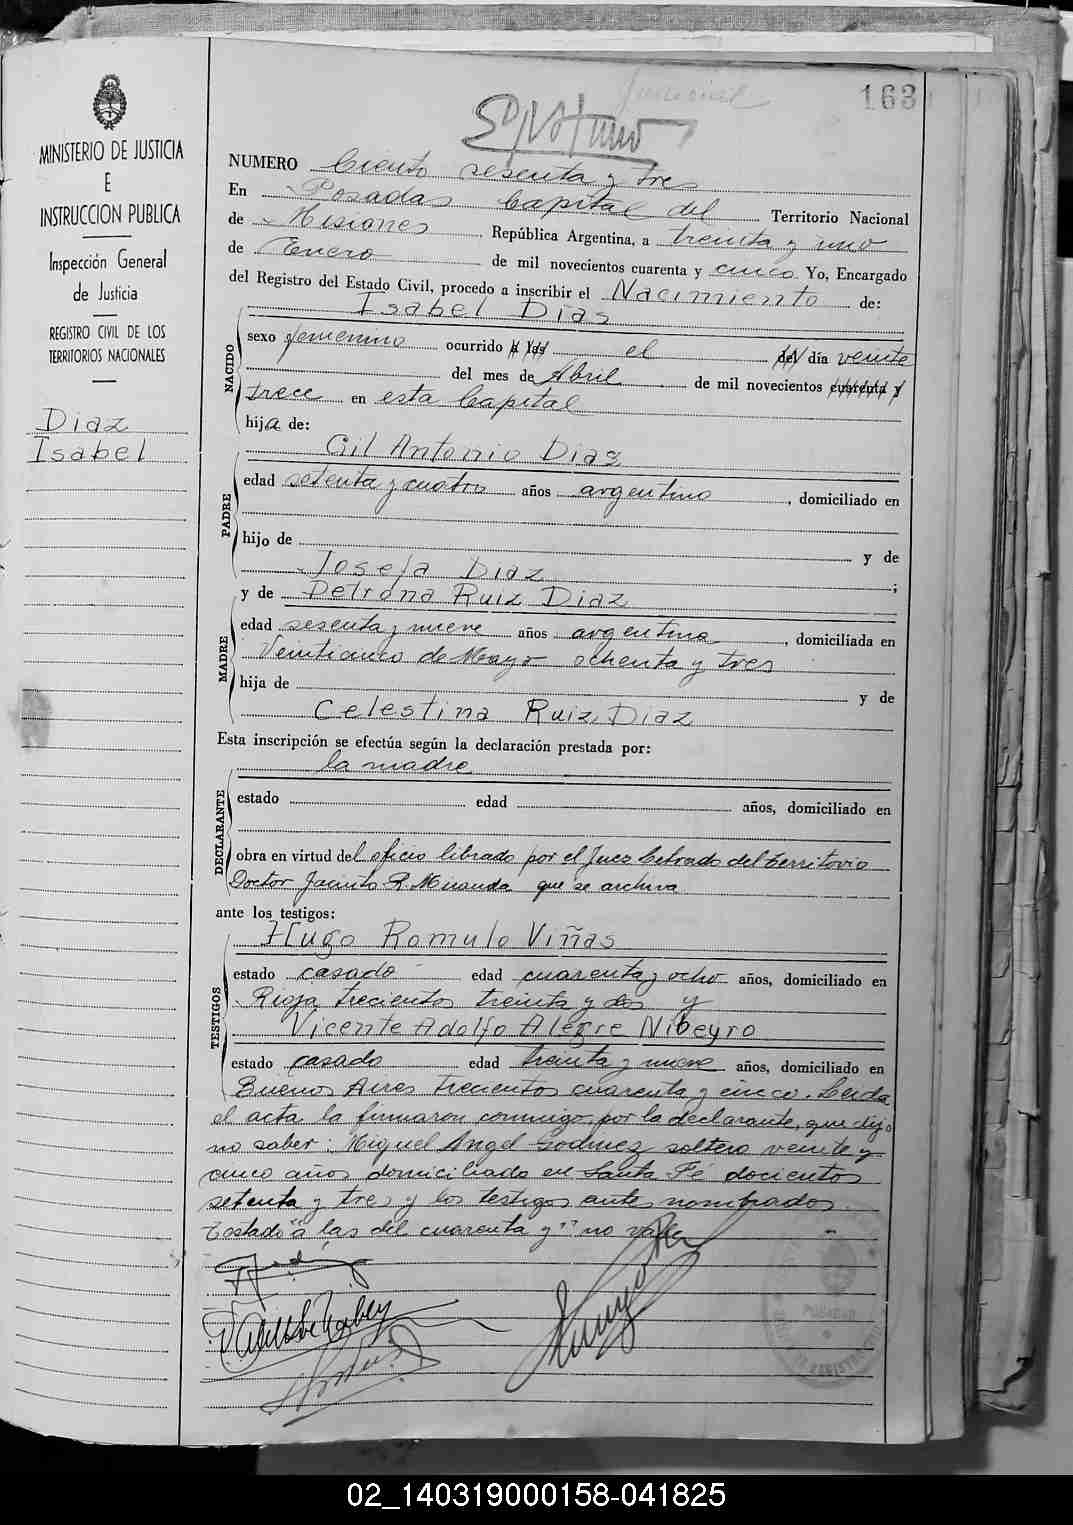 163
MINISTERIO DE JUSTICIA
E
INSTRUCCION PUBLICA
Inspección General
de Justicia
REGISTRO CIVIL DE LOS
TERRITORIOS NACIONALES
Diaz
Isabel
NUMERO Ciento sesenta y tres
En Posadas Capital del Territorio Nacional
de Misiones República Argentina, a treinta y uno
de Enero de mil novecientos cuarenta y cinco Yo, Encargado
del Registro del Estado Civil, procedo a inscribir el Nacimiento de:
Isabel Dias
NACIDO
sexo femenino ocurrido a las el del día veinte
del mes de Abril de mil novecientos cuarenta y
trece en esta Capital
hija de:
Gil Antonio Diaz
PADRE
edad setenta y cuatro años argentino, domiciliado en
hijo de y de
Josefa Diaz ;
y de Petrona Ruiz Diaz
MADRE
edad sesenta y nueve años argentina, domiciliada en
Veinticinco de Mayo ochenta y tres
hija de y de
Celestina Ruiz Diaz
Esta inscripción se efectúa según la declaración prestada por:
la madre
DECLARANTE
estado edad años, domiciliado en
obra en virtud del oficio librado por el Juez Letrado del territorio
Doctor Jacinto R. Miranda que se archiva
ante los testigos:
Hugo Romulo Viñas
TESTIGOS
estado casado edad cuarenta y ocho años, domiciliado en
Rioja trecientos treinta y dos y
Vicente Adolfo Alegre Nibeyro
estado casado edad treinta y nueve años, domiciliado en
Buenos Aires trecientos cuarenta y cinco. Leida
el acta la firmaron conmigo, por la declarante, que dijo
no saber: Miguel Angel Godinez soltero veinte y
cinco años domiciliado en Santa Fé docientos
setenta y tres y los testigos antes nombrados.
Testado "a las del cuarenta y" no vale
POSADAS
02_140319000158-041825